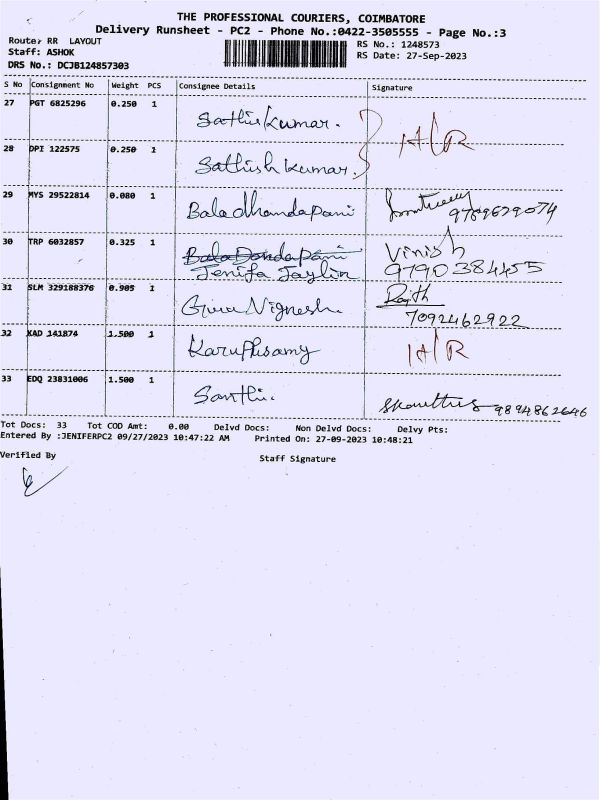 THE PROFESSIONAL COURIERS, COIMBATORE
Delivery Runsheet - PC2 - Phone No.:0422-3505555 - Page No.:3
Route: RR LAYOUT RS No.: 1248573
Staff: ASHOK RS Date: 27-Sep-2023
DRS No.: DCJB124857303
S No Consignment No Weight PCS Consignee Details Signature
27 PGT 6825296 0.250 1
Sathis Kumar. H/R
28 DPI 122575 0.250 1
Sathish Kumar.
29 MYS 29522814 0.080 1
Baladhandapani 9789629074
30 TRP 6032857 0.325 1
Bala Dandapani Vinish
Jenifa Jaylin 9790384455
31 SLM 329188376 0.905 1 Rajith
Vignesh. 7092462922
32 KAD 141874 1.500 1
Karuppusamy H/R
33 EDQ 23831006 1.500 1
Santhi. 9894862646
Tot Docs: 33 Tot COD Amt: 0.00 Delvd Docs: Non Delvd Docs: Delvy Pts:
Entered By :JENIFERPC2 09/27/2023 10:47:22 AM Printed On: 27-09-2023 10:48:21
Verified By Staff Signature